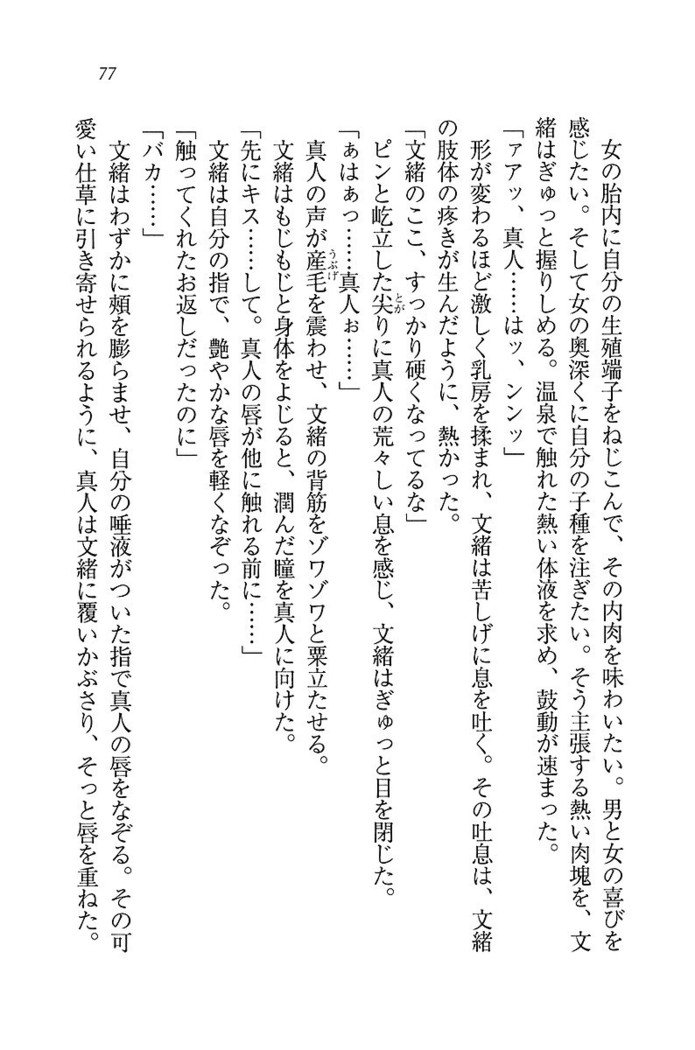 77
　女の胎内に自分の生殖端子をねじこんで、その内肉を味わいたい。男と女の喜びを
感じたい。そして女の奥深くに自分の子種を注ぎたい。そう主張する熱い肉塊を、文
緒はぎゅっと握りしめる。温泉で触れた熱い体液を求め、鼓動が速まった。
「アアッ、真人……はッ、ンンッ」
　形が変わるほど激しく乳房を揉まれ、文緒は苦しげに息を吐く。その吐息は、文緒
の肢体の疼きが生んだように、熱かった。
「文緒のここ、すっかり硬くなってるな」
　ピンと屹立した尖りに真人の荒々しい息を感じ、文緒はぎゅっと目を閉じた。
「ぁはぁっ……真人ぉ……」
　真人の声が産毛を震わせ、文緒の背筋をゾワゾワと粟立たせる。
　文緒はもじもじと身体をよじると、潤んだ瞳を真人に向けた。
「先にキス……して。真人の唇が他に触れる前に……」
　文緒は自分の指で、艶やかな唇を軽くなぞった。
「触ってくれたお返しだったのに」
「バカ……」
　文緒はわずかに頰を膨らませ、自分の唾液がついた指で真人の唇をなぞる。その可
愛い仕草に引き寄せられるように、真人は文緒に覆いかぶさり、そっと唇を重ねた。